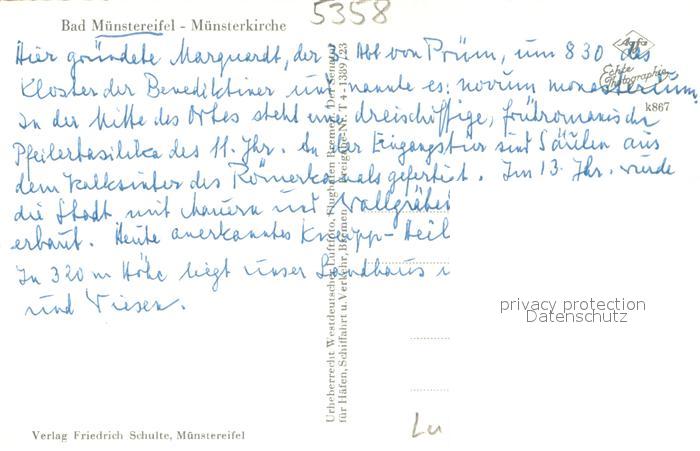 5358
Bad Münstereifel - Münsterkirche
Agfa
Echte Photographie
k867
Hier gründete Marquardt, der 3. Abt von Prüm, um 830 das
Kloster der Benediktiner und nannte es: novum monasterium.
In der Mitte des Ortes steht eine dreischiffige, frühromanische
Pfeilerbasilika des 11. Jhr. An der Eingangstür sind Säulen aus
dem Kalksinter des Römerkanals gefertigt. Im 13. Jhr. wurde
die Stadt mit Mauern und Wallgräben
erbaut. Heute anerkanntes Kneipp-Heil
In 320 m Höhe liegt unser Landhaus
und Wiesen.
Urheberrecht Westdeutscher Luftfoto, Flughafen Bremen. Der Senator
für Häfen, Schiffahrt u. Verkehr, Bremen Freigabe-Nr. T 4-1389/23
privacy protection
Datenschutz
Lu
Verlag Friedrich Schulte, Münstereifel